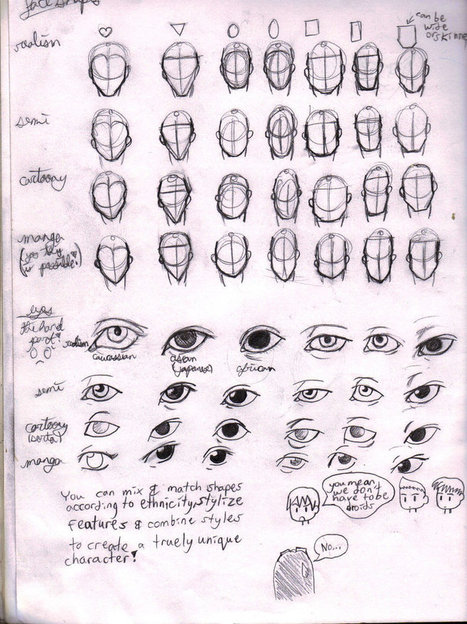 face shapes
can be
wide
or skinney
realism
semi
cartoony
manga
(yes
it's possible!)
eyes
the hard
part!
realism
caucassian
asian
(japanese)
african
semi
cartoony
(sorta)
manga
You can mix & match shapes
according to ethnicity, stylize
features & combine styles
to create a truely unique
character!
you mean,
we don't
have to be
droids
No...